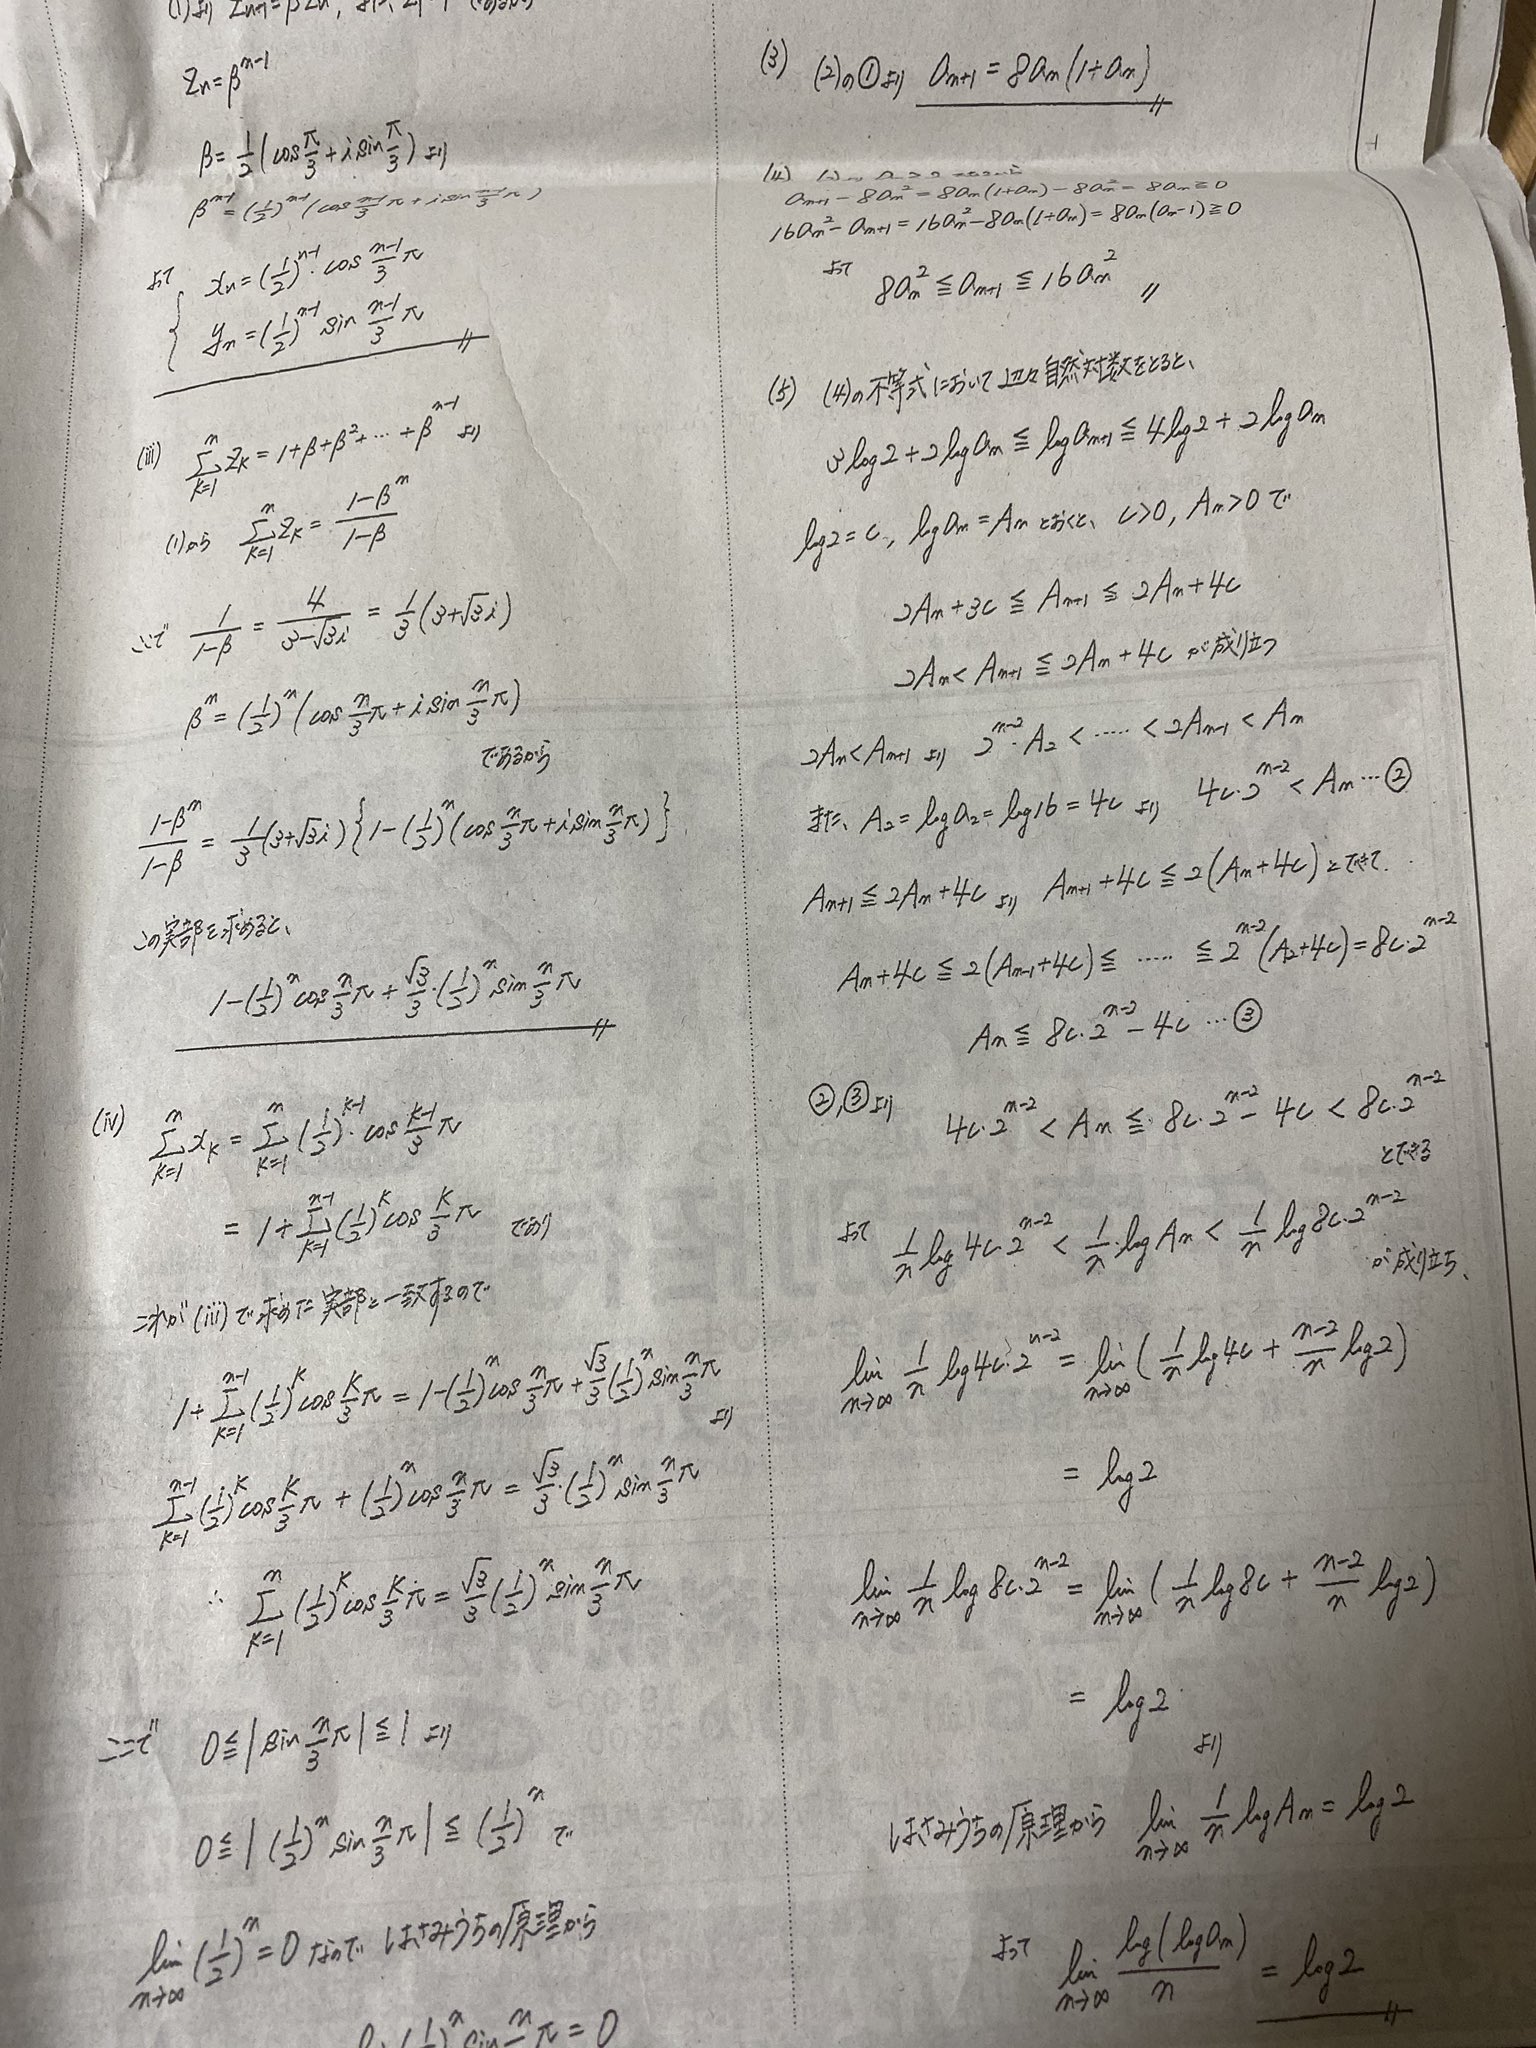 (1)より Zn+1=βZn,
Zn=β^(n-1)
β=1/2(cosπ/3+i sinπ/3) より
β^(n-1)=(1/2)^(n-1)(cos (n-1)/3 π+i sin (n-1)/3 π)
よって
xn=(1/2)^(n-1)・cos (n-1)/3 π
yn=(1/2)^(n-1) sin (n-1)/3 π
(iii) Σ[k=1→n] Zk=1+β+β²+…+β^(n-1) より
(1)から Σ[k=1→n] Zk=(1-β^n)/(1-β)
ここで 1/(1-β)=4/(3-√3i)=1/3(3+√3i)
β^n=(1/2)^n(cos n/3 π+i sin n/3 π)
であるから
(1-β^n)/(1-β)=1/3(3+√3i){1-(1/2)^n(cos n/3 π+i sin n/3 π)}
この実部を求めると、
1-(1/2)^n cos n/3 π+√3/3・(1/2)^n sin n/3 π
(iv) Σ[k=1→n] xk=Σ[k=1→n](1/2)^(k-1)・cos (k-1)/3 π
=1+Σ[k=1→n-1](1/2)^k cos k/3 π であり
これが(iii)で求めた実部と一致するので
1+Σ[k=1→n-1](1/2)^k cos k/3 π=1-(1/2)^n cos n/3 π+√3/3(1/2)^n sin n/3 π
より
Σ[k=1→n-1](1/2)^k cos k/3 π+(1/2)^n cos n/3 π=√3/3・(1/2)^n sin n/3 π
∴ Σ[k=1→n](1/2)^k cos k/3 π=√3/3(1/2)^n sin n/3 π
ここで 0≦|sin n/3 π|≦1 より
0≦|(1/2)^n sin n/3 π|≦(1/2)^n で
lim[n→∞](1/2)^n=0 なので はさみうちの原理から
(1/2)^n sin n/3 π=0
(3) (2)の①より an+1=8an(1+an)
(4)
an+1-8an²=8an(1+an)-8an²=8an≧0
16an²-an+1=16an²-8an(1+an)=8an(an-1)≧0
よって 8an²≦an+1≦16an²
(5) (4)の不等式において辺々自然対数をとると、
3log2+2logan≦logan+1≦4log2+2logan
log2=c, logan=Anとおくと、c>0, An>0で
2An+3c≦An+1≦2An+4c
2An<An+1≦2An+4c が成り立つ
2An<An+1 より 2^(n-2)・A2<……<2An-1<An
また、A2=loga2=log16=4c より 4c・2^(n-2)<An…②
An+1≦2An+4c より An+1+4c≦2(An+4c)とできて.
An+4c≦2(An-1+4c)≦……≦2^(n-2)(A2+4c)=8c・2^(n-2)
An≦8c・2^(n-2)-4c…③
②,③より 4c・2^(n-2)<An≦8c・2^(n-2)-4c<8c・2^(n-2)
とできる
よって 1/n log4c・2^(n-2)<1/n・logAn<1/n log8c・2^(n-2)
が成り立ち、
lim[n→∞] 1/n log4c・2^(n-2)=lim[n→∞](1/n log4c+(n-2)/n log2)
=log2
lim[n→∞] 1/n log8c・2^(n-2)=lim[n→∞](1/n log8c+(n-2)/n log2)
=log2
より
はさみうちの原理から lim[n→∞] 1/n logAn=log2
よって lim[n→∞] log(logan)/n=log2